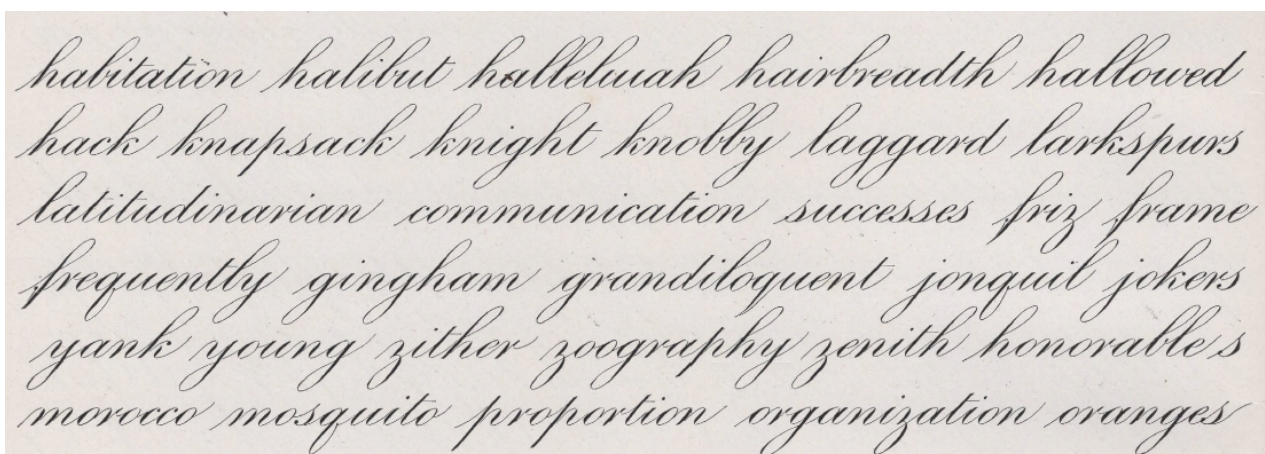 habitation halibut halleluiah hairbreadth hallowed
hack knapsack knight knobby laggard larkspurs
latitudinarian communication successes friz frame
frequently gingham grandiloquent jonquil jokers
yank young zither zoography zenith honorable s
morocco mosquito proportion organization oranges